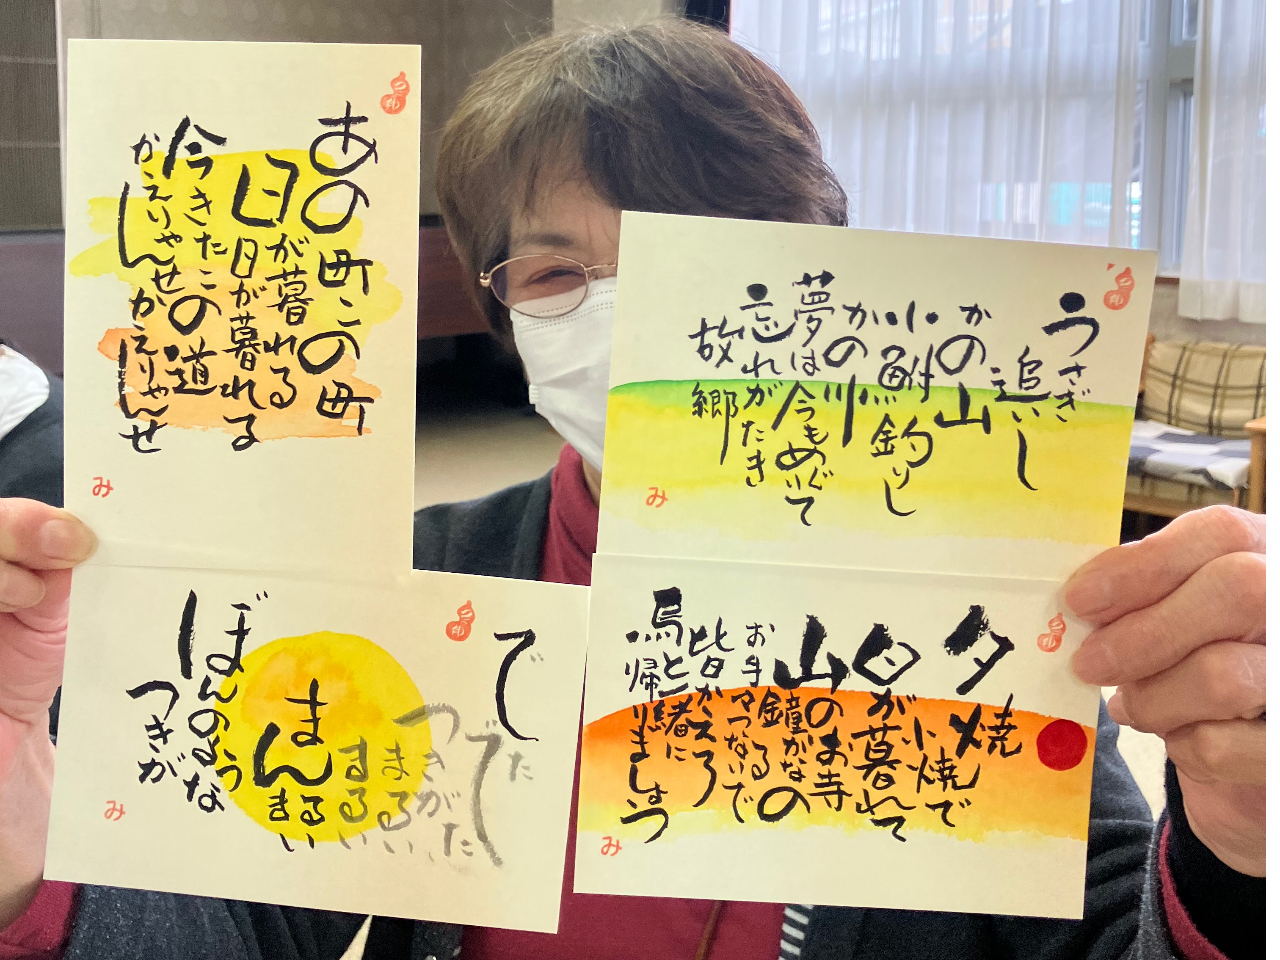 あの町この町
日が暮れる
日が暮れる
今きたこの道
かえりゃんせかえりゃんせ
み
うさぎ
追いし
かの山
小鮒釣りし
かの川
夢は今もめぐりて
忘れがたき
故郷
み
でた
でた
つきが
まるい
まるい
まんまるい
ぼんのような
つきが
み
夕焼
小焼で
日が暮れて
山のお寺の
鐘がなる
お手々つないで
皆かえろ
烏と一緒に
帰りましょう
み